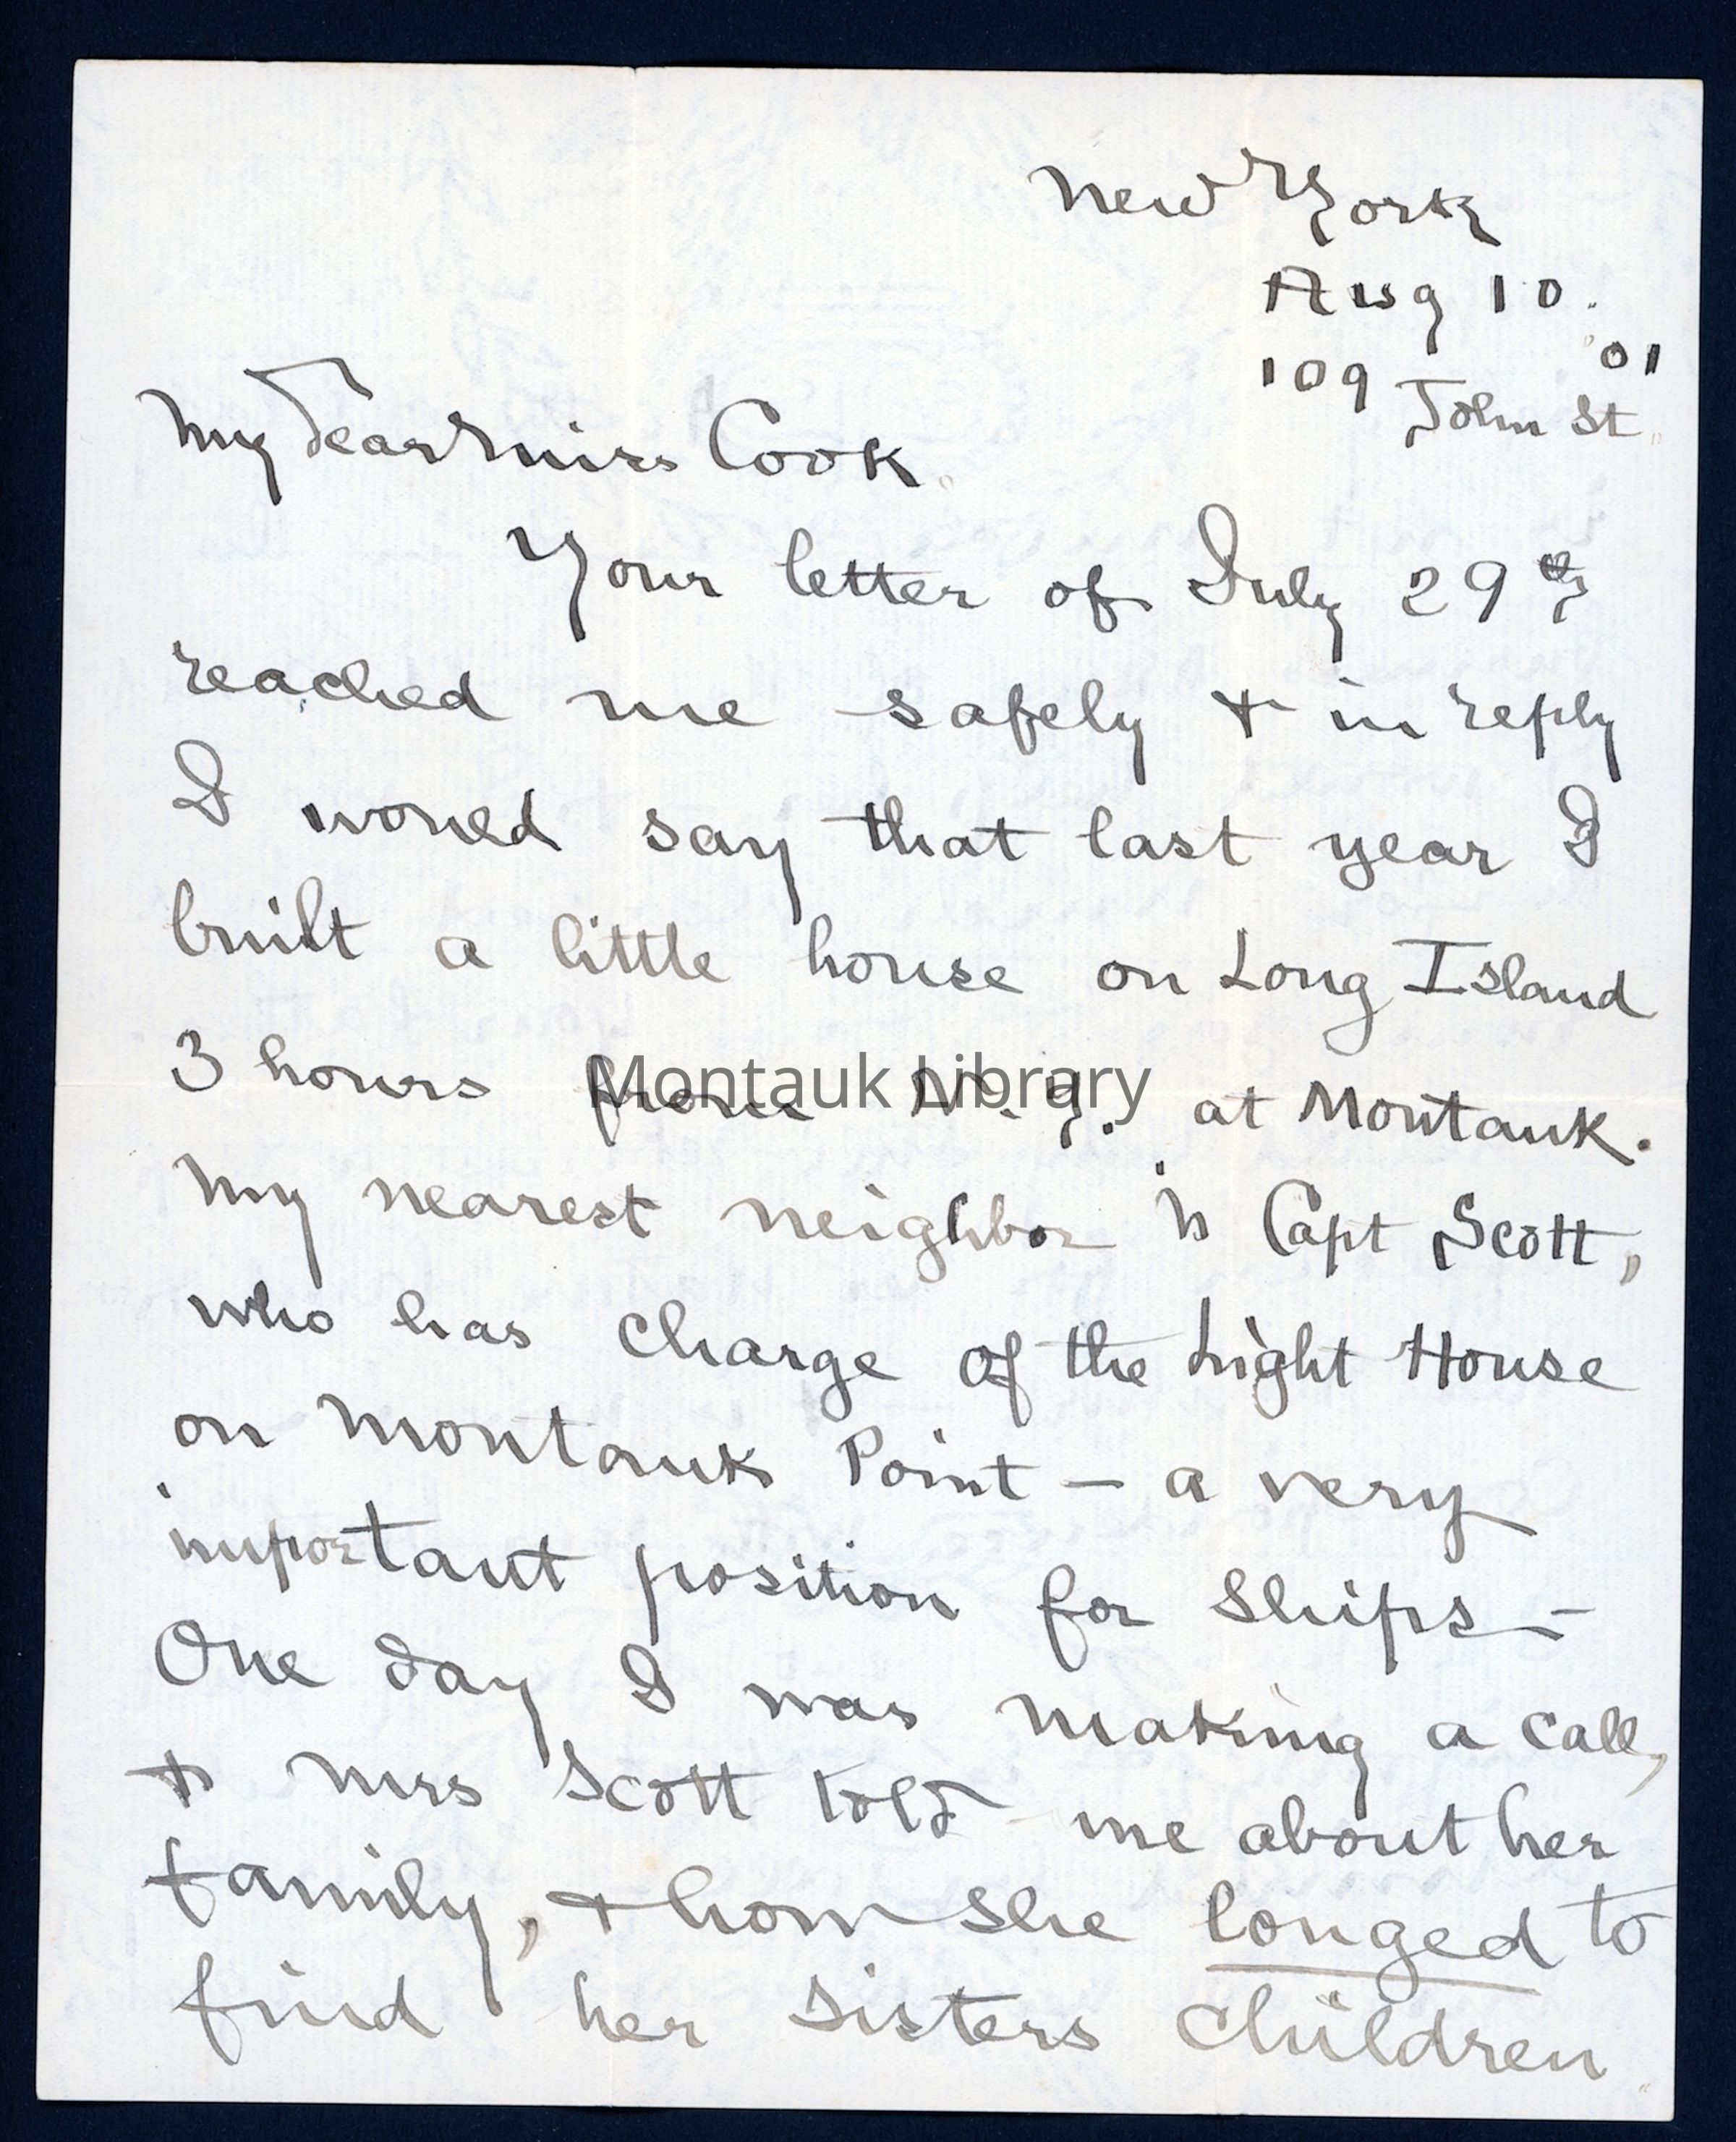 New York
Aug 10.
'01
109 John St.
My Dear Miss Cook.
Your letter of July 29th
reached me safely + in reply
I would say that last year I
built a little house on Long Island
3 hours from N.Y. at Montauk.
Montauk Library
My nearest neighbor is Capt Scott,
who has charge of the Light House
on Montauk Point — a very
important position for ships —
One day I was making a call,
+ Mrs Scott told me about her
family, + how she longed to
find her sisters children